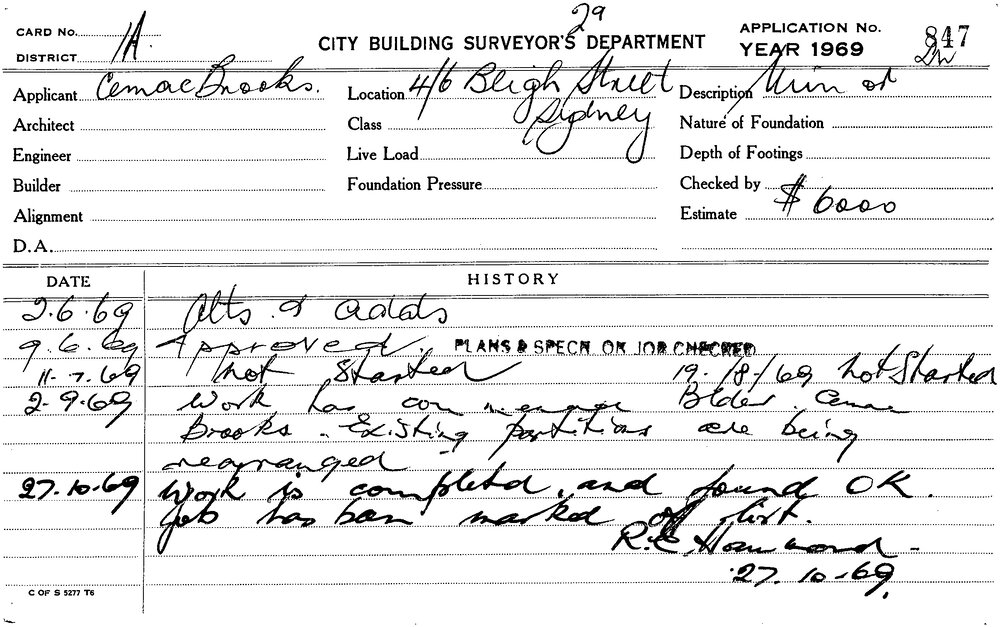 29
CARD No. 1A.
CITY BUILDING SURVEYOR'S DEPARTMENT
APPLICATION No. 847
DISTRICT
YEAR 1969
Applicant Cemac Brooks.
Location 4/6 Bligh Street Sydney
Description Min or
Architect
Class
Nature of Foundation
Engineer
Live Load
Depth of Footings
Builder
Foundation Pressure
Checked by
Alignment
Estimate $ 6000
D.A.
DATE HISTORY
2.6.69 Alts. & adds
9.6.69 Approved. PLANS & SPECN OK JOB CHECKED
11-7.69 not Started 19-/8-/69 not Started
2-9-69 Work has commence Blder. Cemac
Brooks - Existing partitions are being
rearranged -
27.10-69 Work is completd, and found OK.
Job has ban marked off list.
R.E. Hammond -
27.10-69.
C OF S 5277 T6